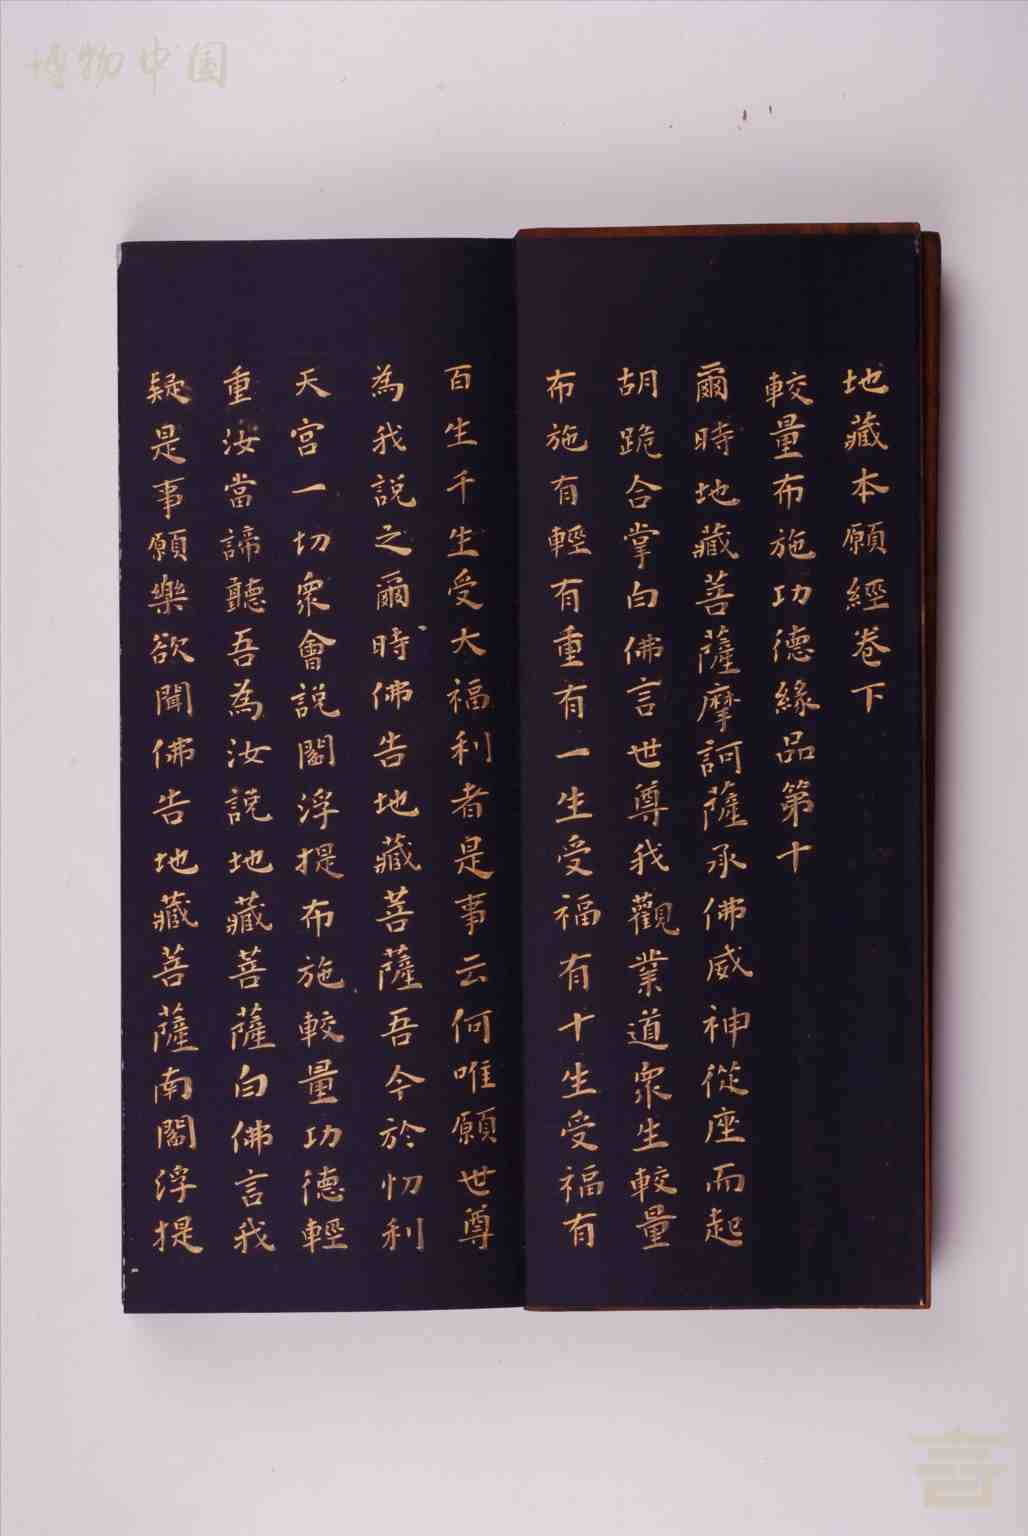 博物中国
地藏本願經卷下
較量布施功德緣品第十
爾時地藏菩薩摩訶薩承佛威神從座而起
胡跪合掌白佛言世尊我觀業道衆生較量
布施有輕有重有一生受福有十生受福有
百生千生受大福利者是事云何唯願世尊
為我說之爾時佛告地藏菩薩吾今於忉利
天宮一切衆會說閻浮提布施較量功德輕
重汝當諦聽吾為汝說地藏菩薩白佛言我
疑是事願樂欲聞佛告地藏菩薩南閻浮提